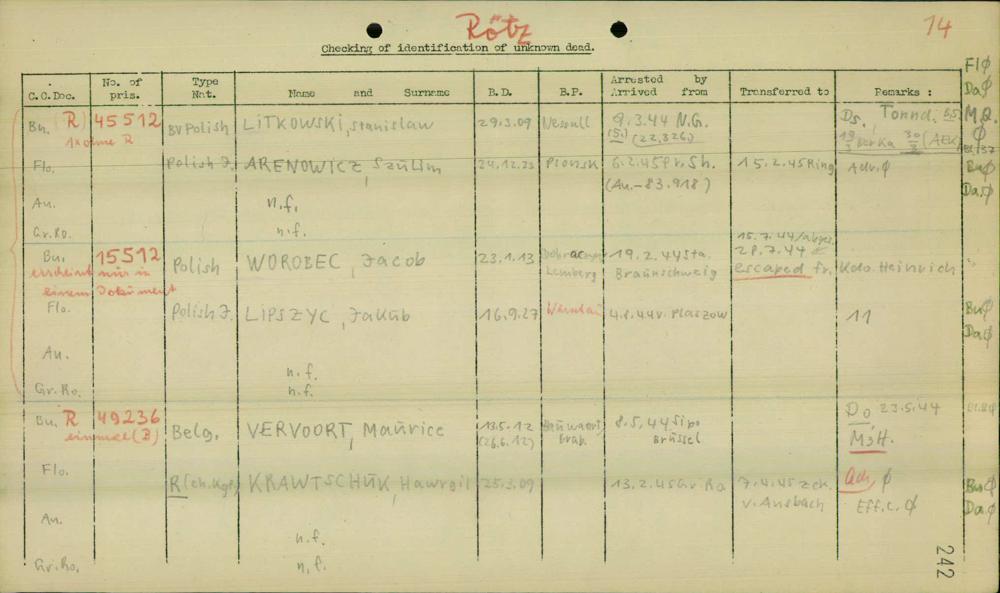 Rötz
14
Checking of identification of unknown dead.
C.C.Doc. No. of pris. Type Nat. Name and Surname B.D. B.P. Arrested by Arrived from Transferred to Remarks :
Flø
Daø
Bu. R) 45512 BV Polish LITKOWSKI, Stanislaw 29.3.09 9.3.44 N.G. Ds, Tonnd. M.Q.
(S.) (22.326)
Flo. Polish J. ARENOWICZ, Szulim 24.12.23 Plonsk 6.2.45 Pr.Sh. 15.2.45 Ring Adr. ø Buø
(Au.-83.918) Daø
Au. n.f.
Gr.Ro. n.f.
15.7.44
Bu. 15512 Polish WOROBEC, Jacob 23.1.13 Lemberg 19.2.44 Sta. Braunschweig 28.7.44 escaped fr. Kdo. Heinrich
erscheint nur in
einem Dokument
Flo. Polish J. LIPSZYC, Jakub 16.9.27 Warschau 4.8.44 v. Plaszow 11 Buø
Daø
Au. n.f.
Gr.Ro. n.f.
Bu. R 49236 Belg. VERVOORT, Maurice 13.5.12 8.5.44 Sipo Do 23.5.44
einmal (B) (26.6.12) Brab. Brüssel M3H.
Flo. R (eh.Kgf) KRAWTSCHUK, Hawrgil 25.3.09 13.2.45 Gr.Ro 7.4.45 zck. Adr, ø Buø
v. Ansbach Eff.c. ø Daø
Au. n.f.
Gr.Ro. n.f.
242